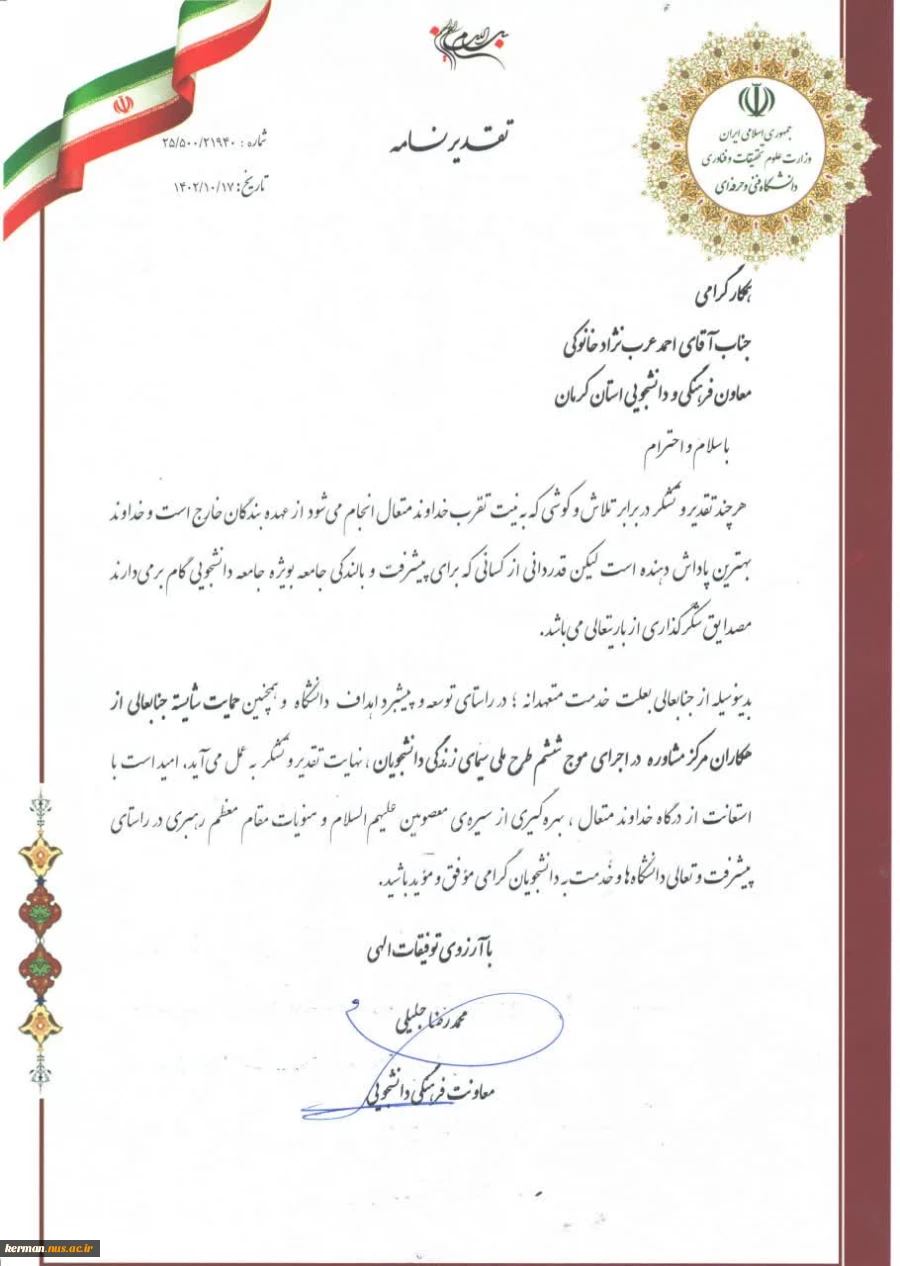 جمهوری اسلامی ایران
وزارت علوم تحقیقات و فناوری
دانشگاه فنی و حرفه‌ای
تقدیرنامه
شماره : ۲۵/۵۰۰/۲۱۹۴۰
تاریخ: ۱۴۰۲/۱۰/۱۷
همکار گرامی
جناب آقای احمد عرب نژاد خانوکی
معاون فرهنگی و دانشجویی استان کرمان
با سلام و احترام
هر چند تقدیر و تشکر در برابر تلاش و کوشی که به نیت تقرب خداوند متعال انجام می‌شود از عهده بندگان خارج است و خداوند
بهترین پاداش دهنده است لیکن قدردانی از کسانی که برای پیشرفت و بالندگی جامعه بویژه جامعه دانشجویی گام برمی‌دارند
مصدایق شکرگذاری از باریتعالی می‌باشد.
بدینوسیله از جنابعالی بعلت خدمت متعهدانه ؛ در راستای توسعه و پیشبرد اهداف دانشگاه و همچنین حمایت شایسته جنابعالی از
همکاران مرکز مشاوره در اجرای موج ششم طرح ملی سیمای زندگی دانشجویان ، نهایت تقدیر و تشکر به عمل می‌آید. امید است با
استعانت از درگاه خداوند متعال ، بهره گیری از سیره‌ی معصومین علیهم السلام و منویات مقام معظم رهبری در راستای
پیشرفت و تعالی دانشگاه ها و خدمت به دانشجویان گرامی موفق و مؤید باشید.
با آرزوی توفیقات الهی
محمدرضا جلیلی
معاونت فرهنگی دانشجویی
kerman.nus.ac.ir